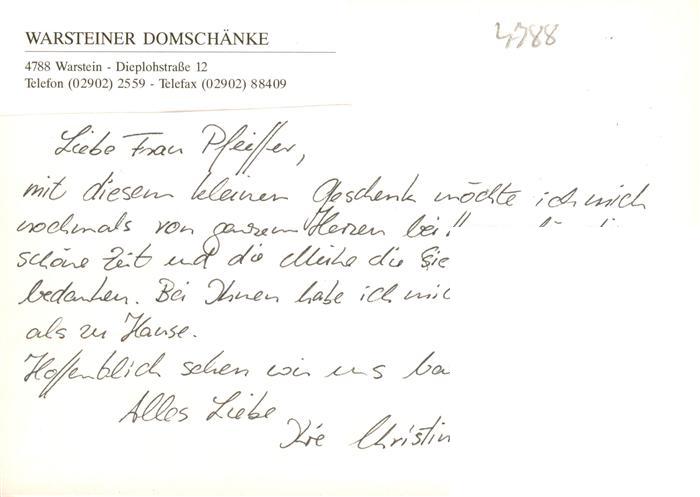 WARSTEINER DOMSCHÄNKE
4788
4788 Warstein - Dieplohstraße 12
Telefon (02902) 2559 - Telefax (02902) 88409
Liebe Frau Pfeiffer,
mit diesem kleinen Geschenk möchte ich mich
nochmals von ganzem Herzen bei
schöne Zeit und die Mühe die Sie
bedanken. Bei Ihnen habe ich
als zu Hause.
Hoffentlich sehen wir uns
Alles Liebe
Ihre Christin